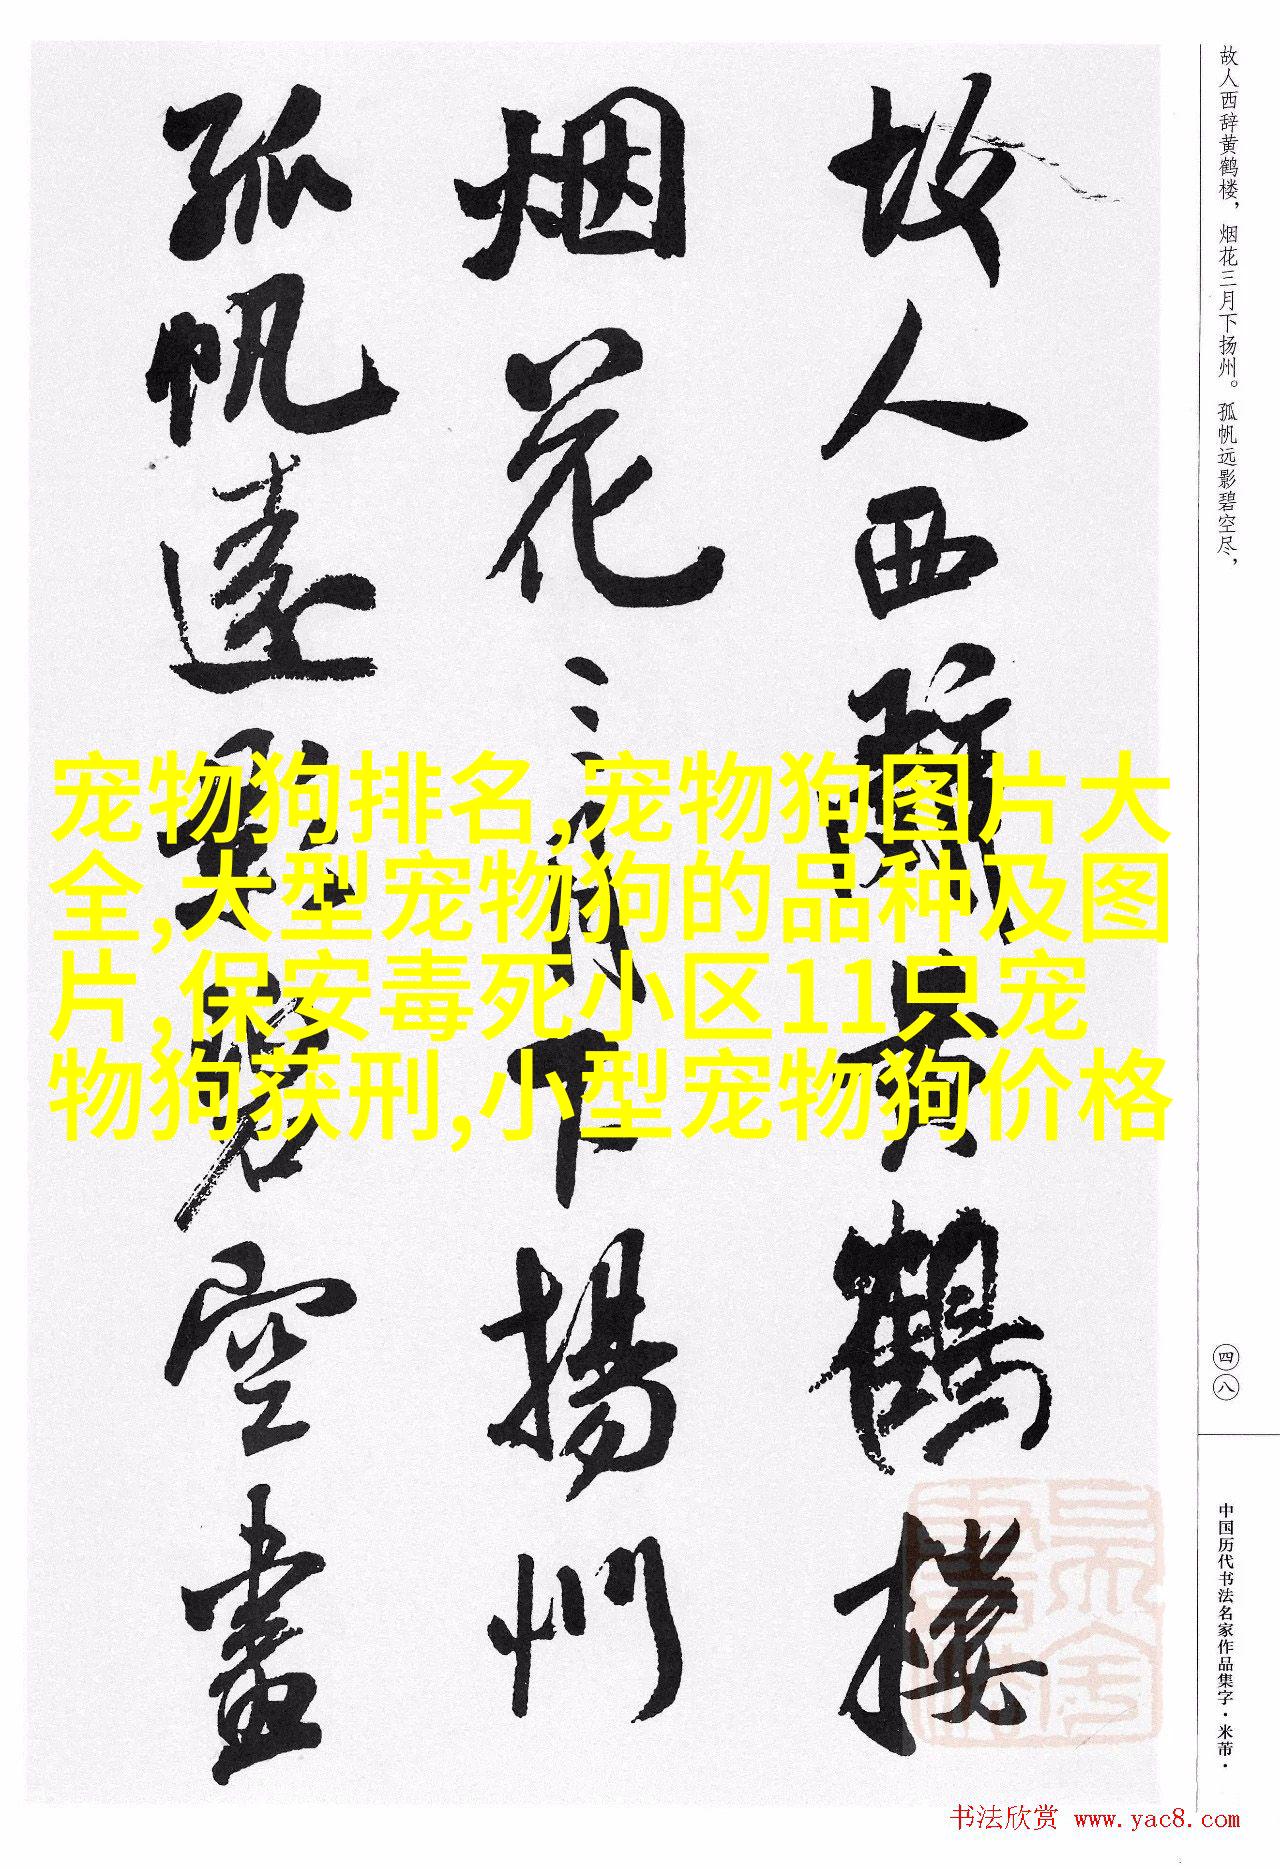 故人西辞黄鹤楼
烟花三月下揚州
孤帆遠影碧空盡
宠物狗排名,宠物狗图片大
全,大型宠物狗的品种及图
片,保安毒死小区11只宠
物狗获刑,小型宠物狗价格
故人西辞黄鹤楼，烟花三月下扬州。孤帆远影碧空尽，
四八
中国历代书法名家作品集字·米芾·
书法欣赏 www.yac8.com